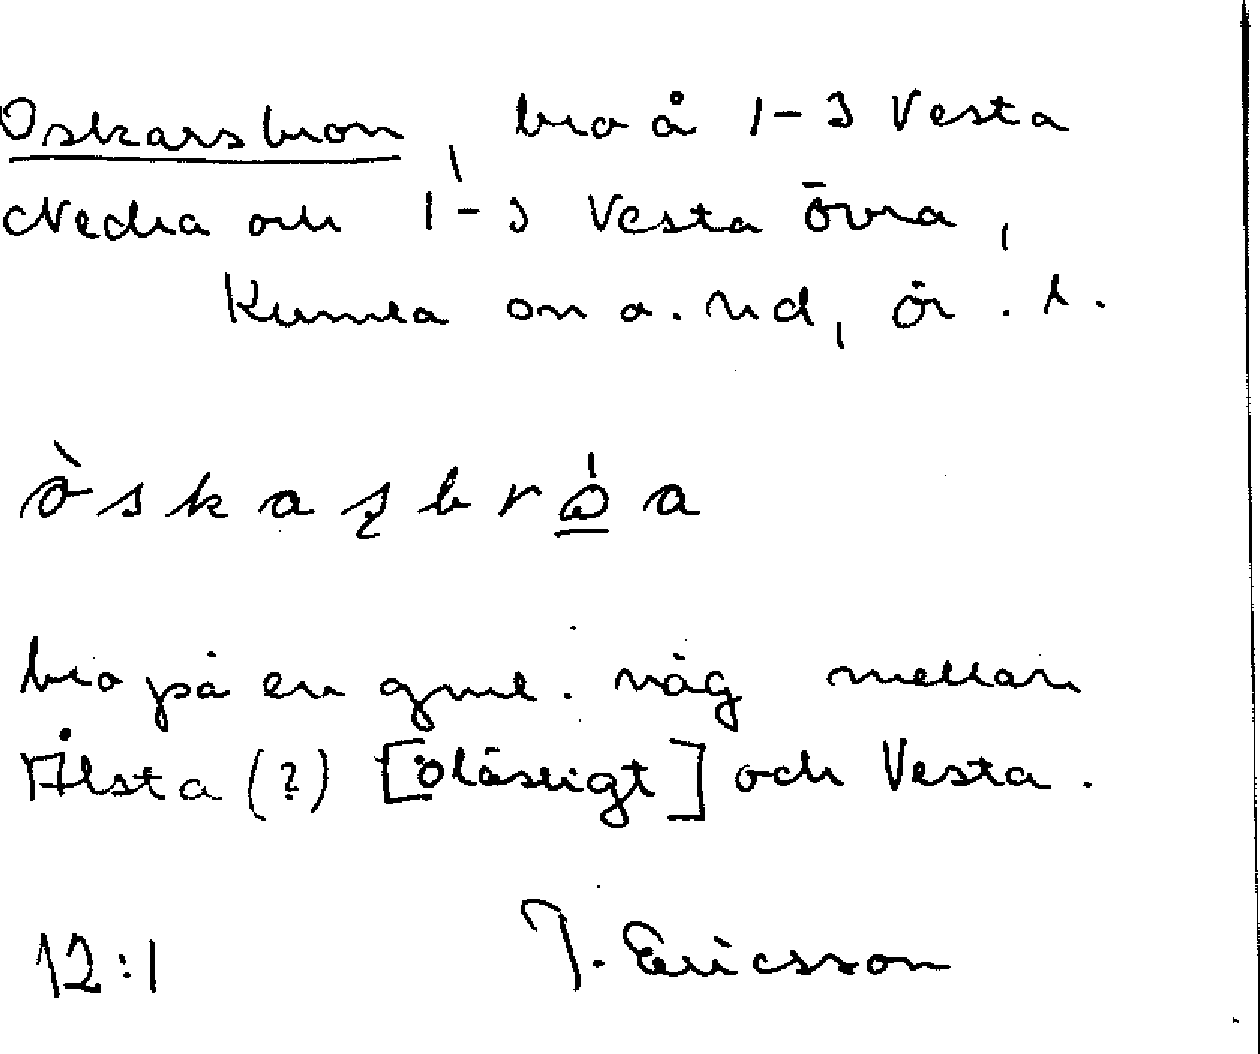 Oskarsbron, bro å 1-3 Vesta
Nedra och 1-3 Vesta Övra,
Kumla sn o. hd, ör. l.
òskaʂbrǫ́a
bro på en gml. väg mellan
Ålsta (?) [oläsligt] och Vesta.
12:1 J. Ericsson